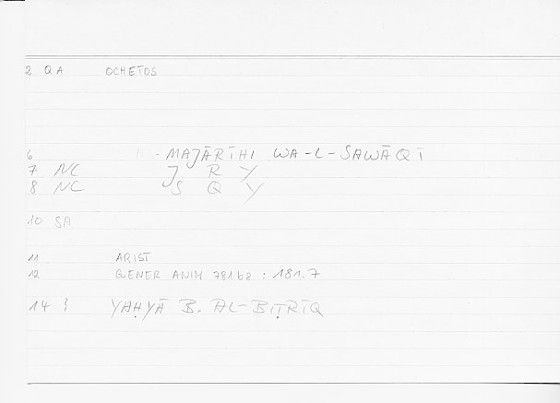 2 QA OCHETOS
6 - MAJĀRĪHI WA-L-SAWĀQĪ
7 NC J R Y
8 NC S Q Y
10 SA
11 ARIST
12 GENER ANIM 781b2 : 181.7
14 YAḤYĀ B. AL-BIṬRĪQ